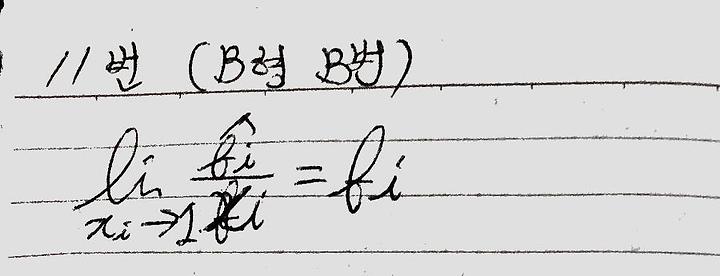 11번 (B형 B법)
lim x_i→1 f̂_i/x_i = f_i